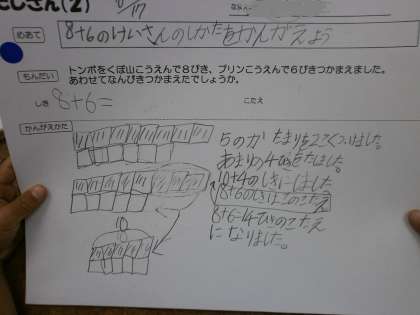 たしざん(2)
めあて 8+6のけいさんのしかたをかんがえよう
もんだい トンボをくぼ山こうえんで8ぴき、プリンこうえんで6ぴきつかまえました。
あわせてなんびきつかまえたでしょうか。
しき 8+6= こたえ
かんがえかた
5のかたまりを2こくっつけました。
あまりの4ひきをたしました。
10+4のしきにしました
8+6のしきはこのこたえ
8+6=14ひきのこたえ
になりました。
10